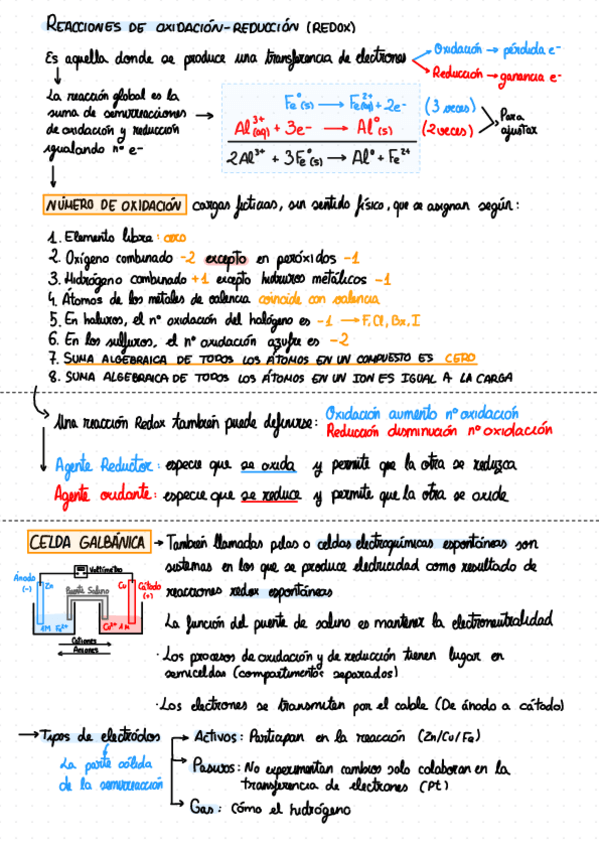 REACCIONES DE OXIDACIÓN-REDUCCIÓN (REDOX)
Es aquella donde se produce una transferencia de electrones
Oxidación → pérdida e-
Reducción → ganancia e-
La reacción global es la
suma de semirreacciones
de oxidación y reducción
igualando nº e-
Fe°(s) → Fe²⁺(aq) + 2e- (3 veces)
Al³⁺(aq) + 3e- → Al°(s) (2 veces)
Para
ajustar
2Al³⁺ + 3Fe°(s) → Al° + Fe²⁺
NÚMERO DE OXIDACIÓN cargas ficticias, sin sentido físico, que se asignan según:
1. Elemento libre: cero
2. Oxígeno combinado -2 excepto en peróxidos -1
3. Hidrógeno combinado +1 excepto hidruros metálicos -1
4. Átomos de los metales de valencia coincide con valencia
5. En haluros, el nº oxidación del halógeno es -1 → F, Cl, Br, I
6. En los sulfuros, el nº oxidación azufre es -2
7. SUMA ALGEBRAICA DE TODOS LOS ÁTOMOS EN UN COMPUESTO ES CERO
8. SUMA ALGEBRAICA DE TODOS LOS ÁTOMOS EN UN ION ES IGUAL A LA CARGA
Una reacción Redox también puede definirse:
Oxidación aumento nº oxidación
Reducción disminución nº oxidación
Agente Reductor: especie que se oxida y permite que la otra se reduzca
Agente oxidante: especie que se reduce y permite que la otra se oxide
CELDA GALBÁNICA → También llamadas pilas o celdas electroquímicas espontáneas son
sistemas en los que se produce electricidad como resultado de
reacciones redox espontáneas
Voltímetro
Ánodo
(-)
Zn
Puente Salino
Cu
Cátodo
(+)
1M
Cu²⁺ 1M
Cationes
Aniones
La función del puente de salino es mantener la electroneutralidad
· Los procesos de oxidación y de reducción tienen lugar en
semiceldas (compartimentos separados)
· Los electrones se transmiten por el cable (De ánodo a cátodo)
→ Tipos de electródos
La parte sólida
de la semirreacción
Activos: Participan en la reacción (Zn/Cu/Fe)
Pasivos: No experimentan cambios solo colaboran en la
transferencia de electrones (Pt)
Gas: Cómo el hidrógeno